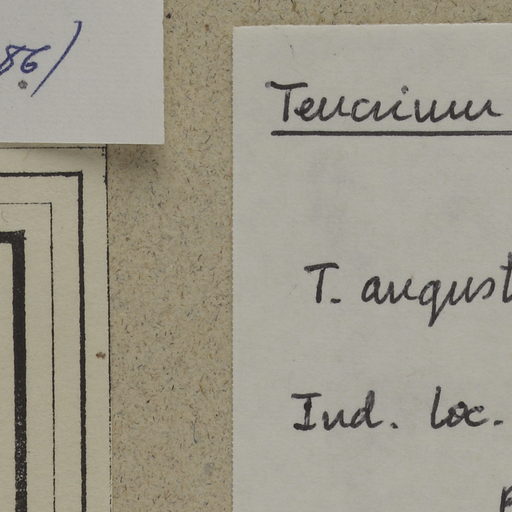 86)
Teucrium
T. angust
Ind. loc.